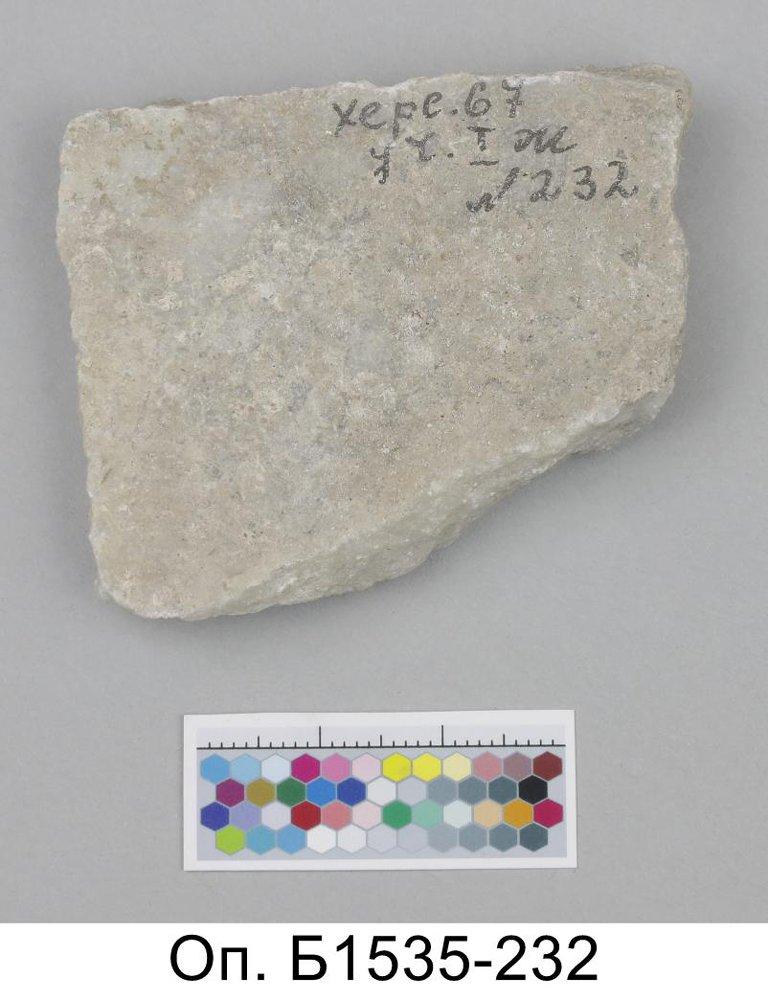 херс.67
уч. I ж
№232
Оп. Б1535-232